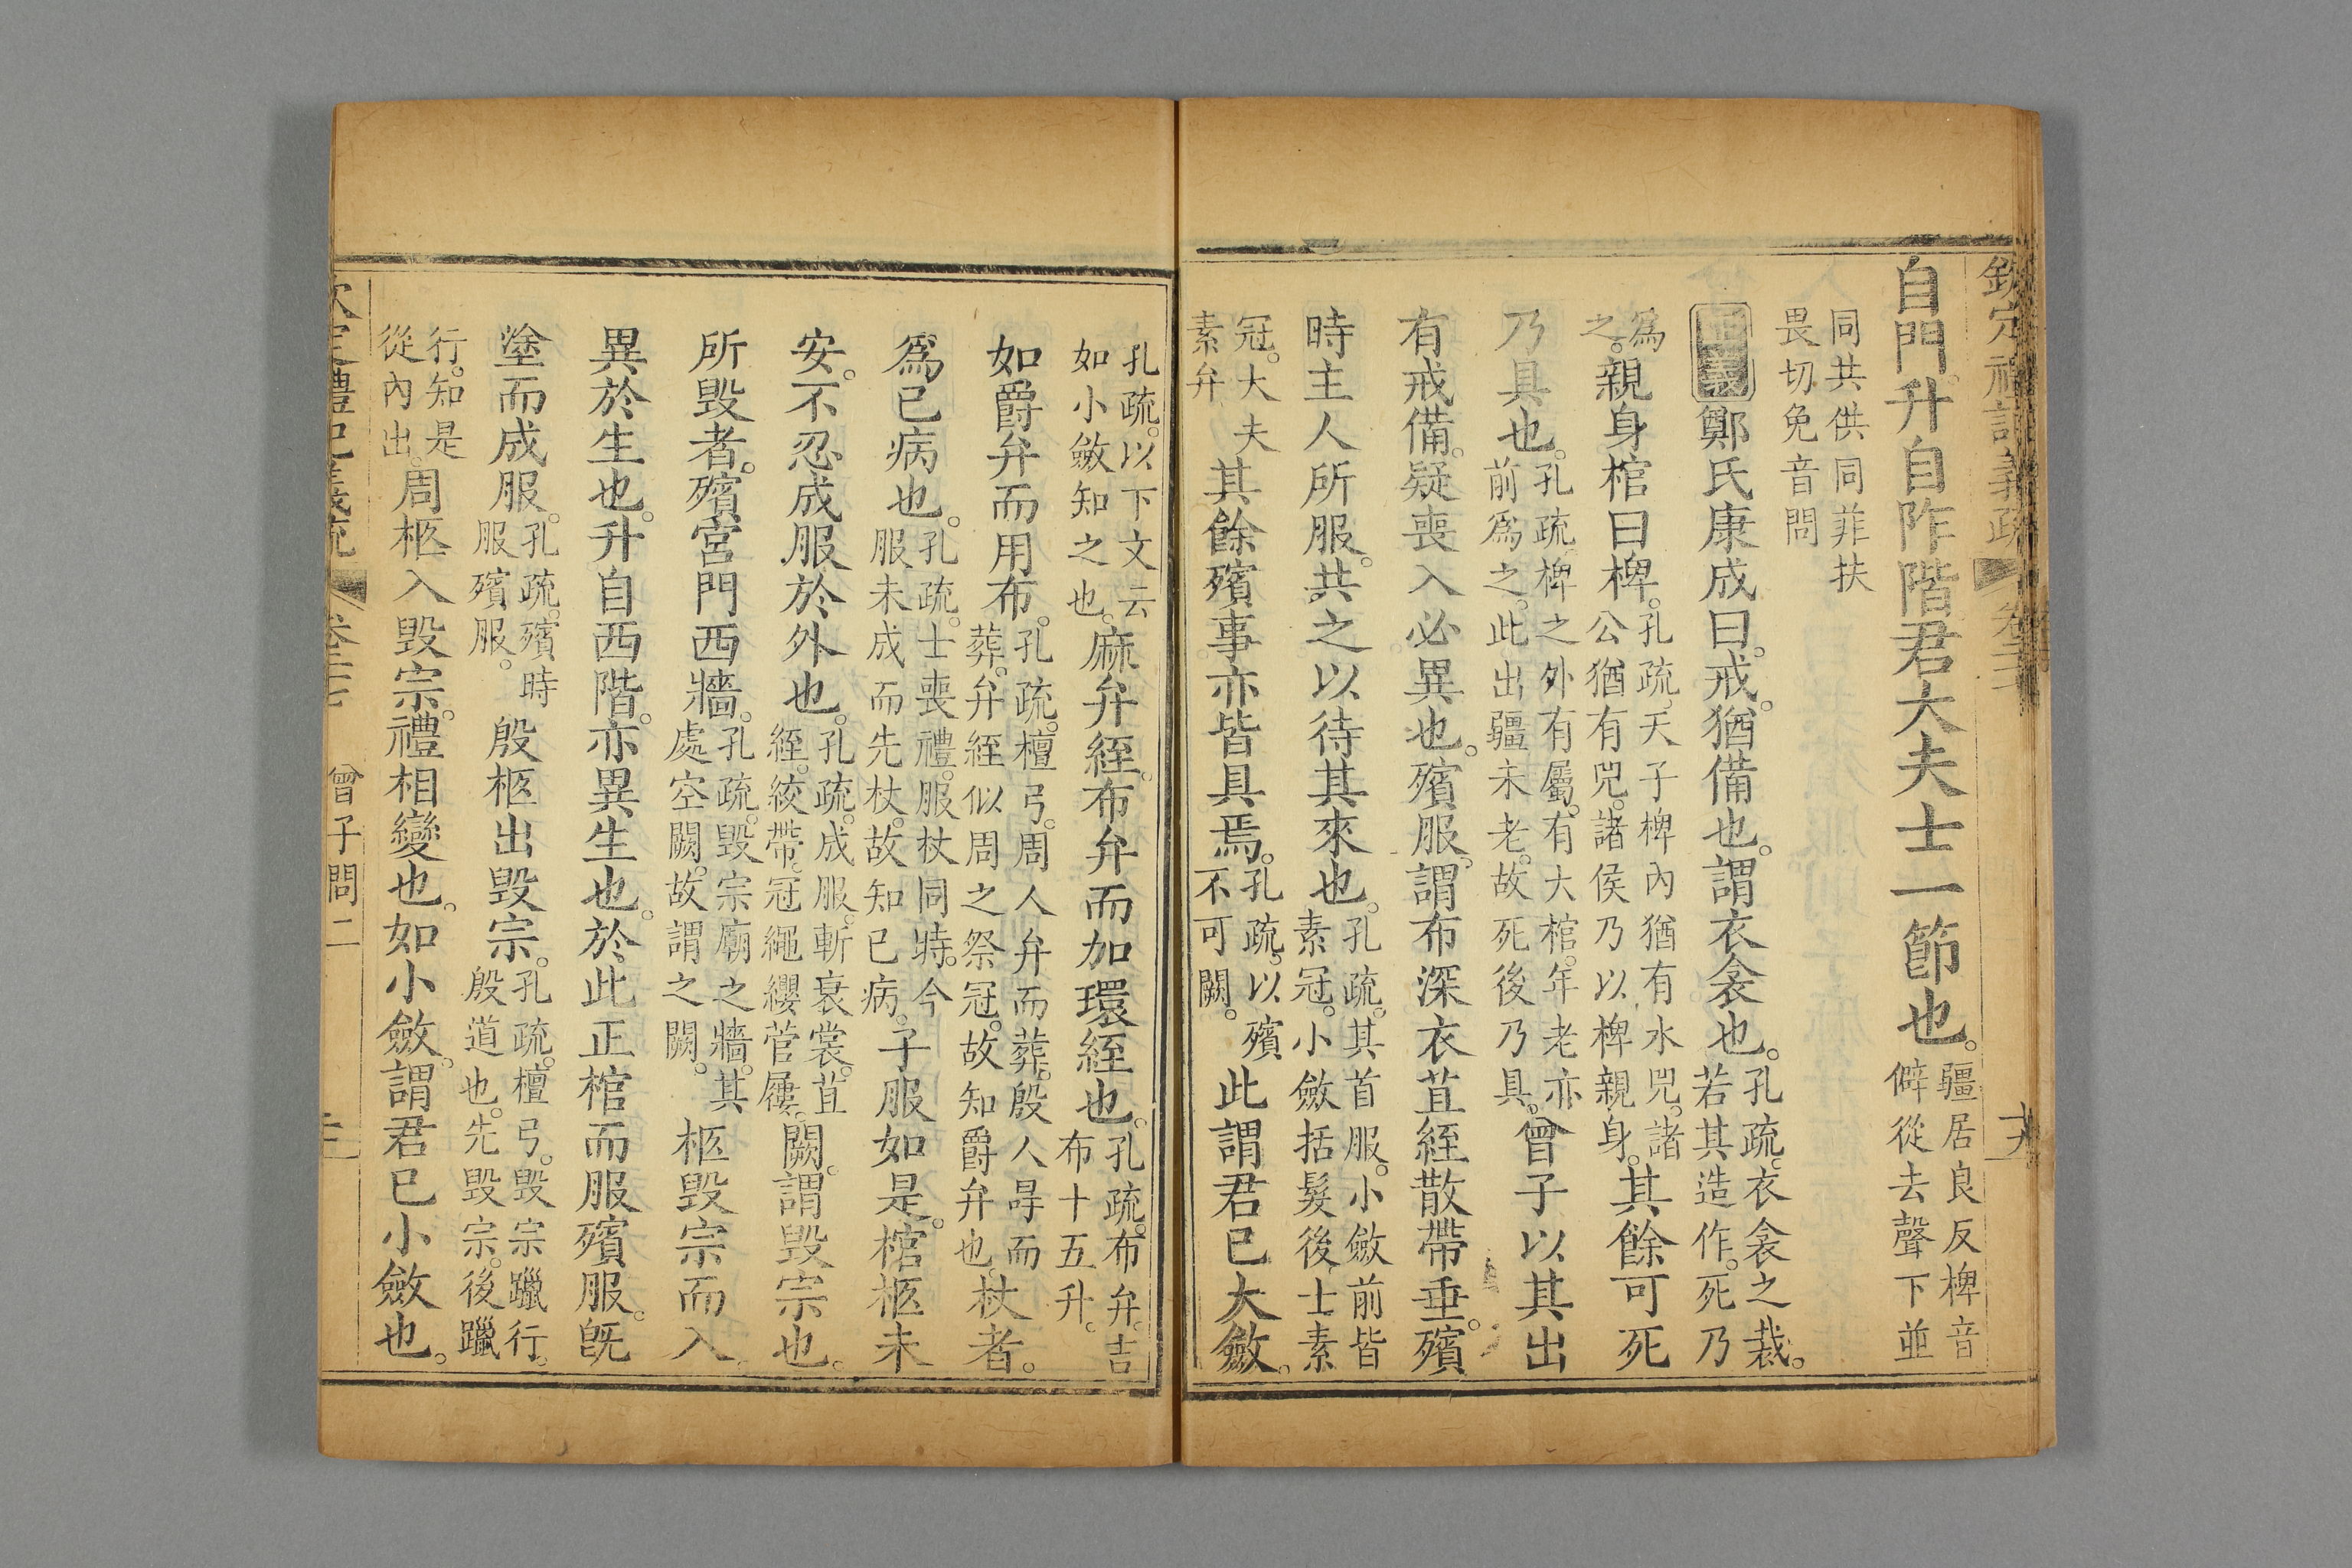 欽定禮記義疏 卷二十 六
自門升自阼階君大夫士一節也。疆居良反椑音
僻從去聲下並
同共供同菲扶
畏切免音問
正義 鄭氏康成曰。戒。猶備也。謂衣衾也。孔疏。衣衾之裁。
若其造作。死乃
爲
之。親身棺曰椑。孔疏。天子椑內猶有水兕。諸
公猶有兕。諸侯乃以椑親身。其餘可死
乃具也。孔疏。椑之外有屬。有大棺。年老亦
前爲之。此出疆未老。故死後乃具。曾子以其出
有戒備。疑喪入必異也。殯服。謂布深衣苴絰散帶垂。殯
時主人所服。共之以待其來也。孔疏。其首服。小斂前皆
素冠。小斂括髮後。士素
冠。大夫
素弁 其餘殯事亦皆具焉。孔疏。以殯
不可闕。此謂君已大斂。
孔疏。以下文云
如小斂知之也。麻弁絰。布弁而加環絰也。孔疏。布弁。吉
布十五升。
如爵弁而用布。孔疏。檀弓。周人弁而葬。殷人冔而
葬。弁絰似周之祭冠。故知爵弁也。杖者。
爲已病也。孔疏。士喪禮。服杖同時。今
服未成而先杖。故知已病。子服如是。棺柩未
安。不忍成服於外也。孔疏。成服。斬衰裳。苴
絰。絞帶。冠繩纓菅屨。闕。謂毀宗也。
所毀者。殯宮門西牆。孔疏。毀宗廟之牆。其
處空闕。故謂之闕。柩毀宗而入。
異於生也。升自西階。亦異生也。於此正棺而服殯服。旣
塗而成服。孔疏。殯時
服殯服。殷柩出毀宗。孔疏。檀弓。毀宗躐行。
殷道也。先毀宗。後躐
行。知是
從內出。周柩入毀宗。禮相變也。如小斂。謂君已小斂也。
欽定禮記義疏 卷二十七 曾子問二